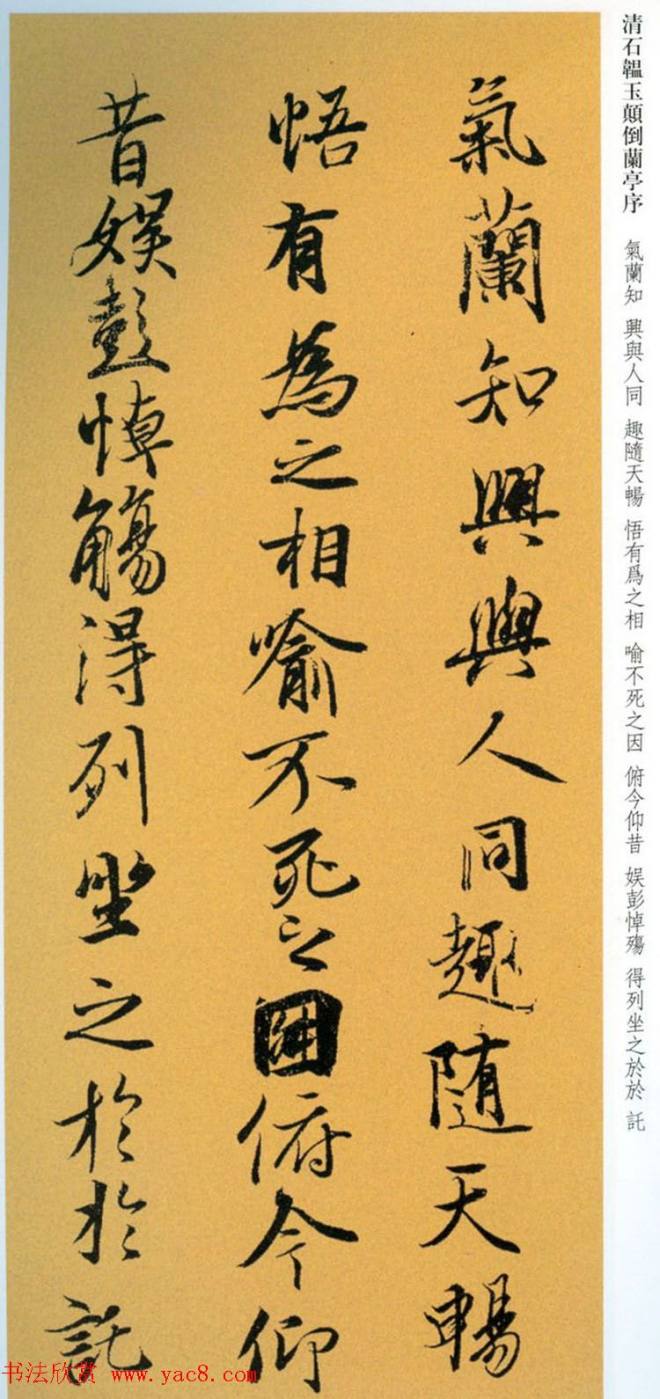 清石韞玉顛倒蘭亭序 氣蘭知 興與人同 趣隨天暢 悟有爲之相 喻不死之因 俯今仰昔 娱彭悼殤 得列坐之於於 託
氣蘭知興與人同趣隨天暢
悟有為之相喻不死之因俯今仰
昔娱彭悼觴得列坐之於於託
书法欣赏 www.yac8.com